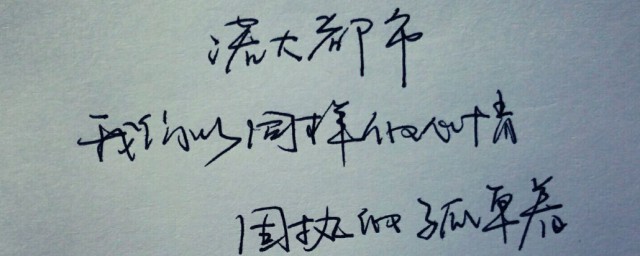 诺大都市
我们以同样的心情
固执的孤单着